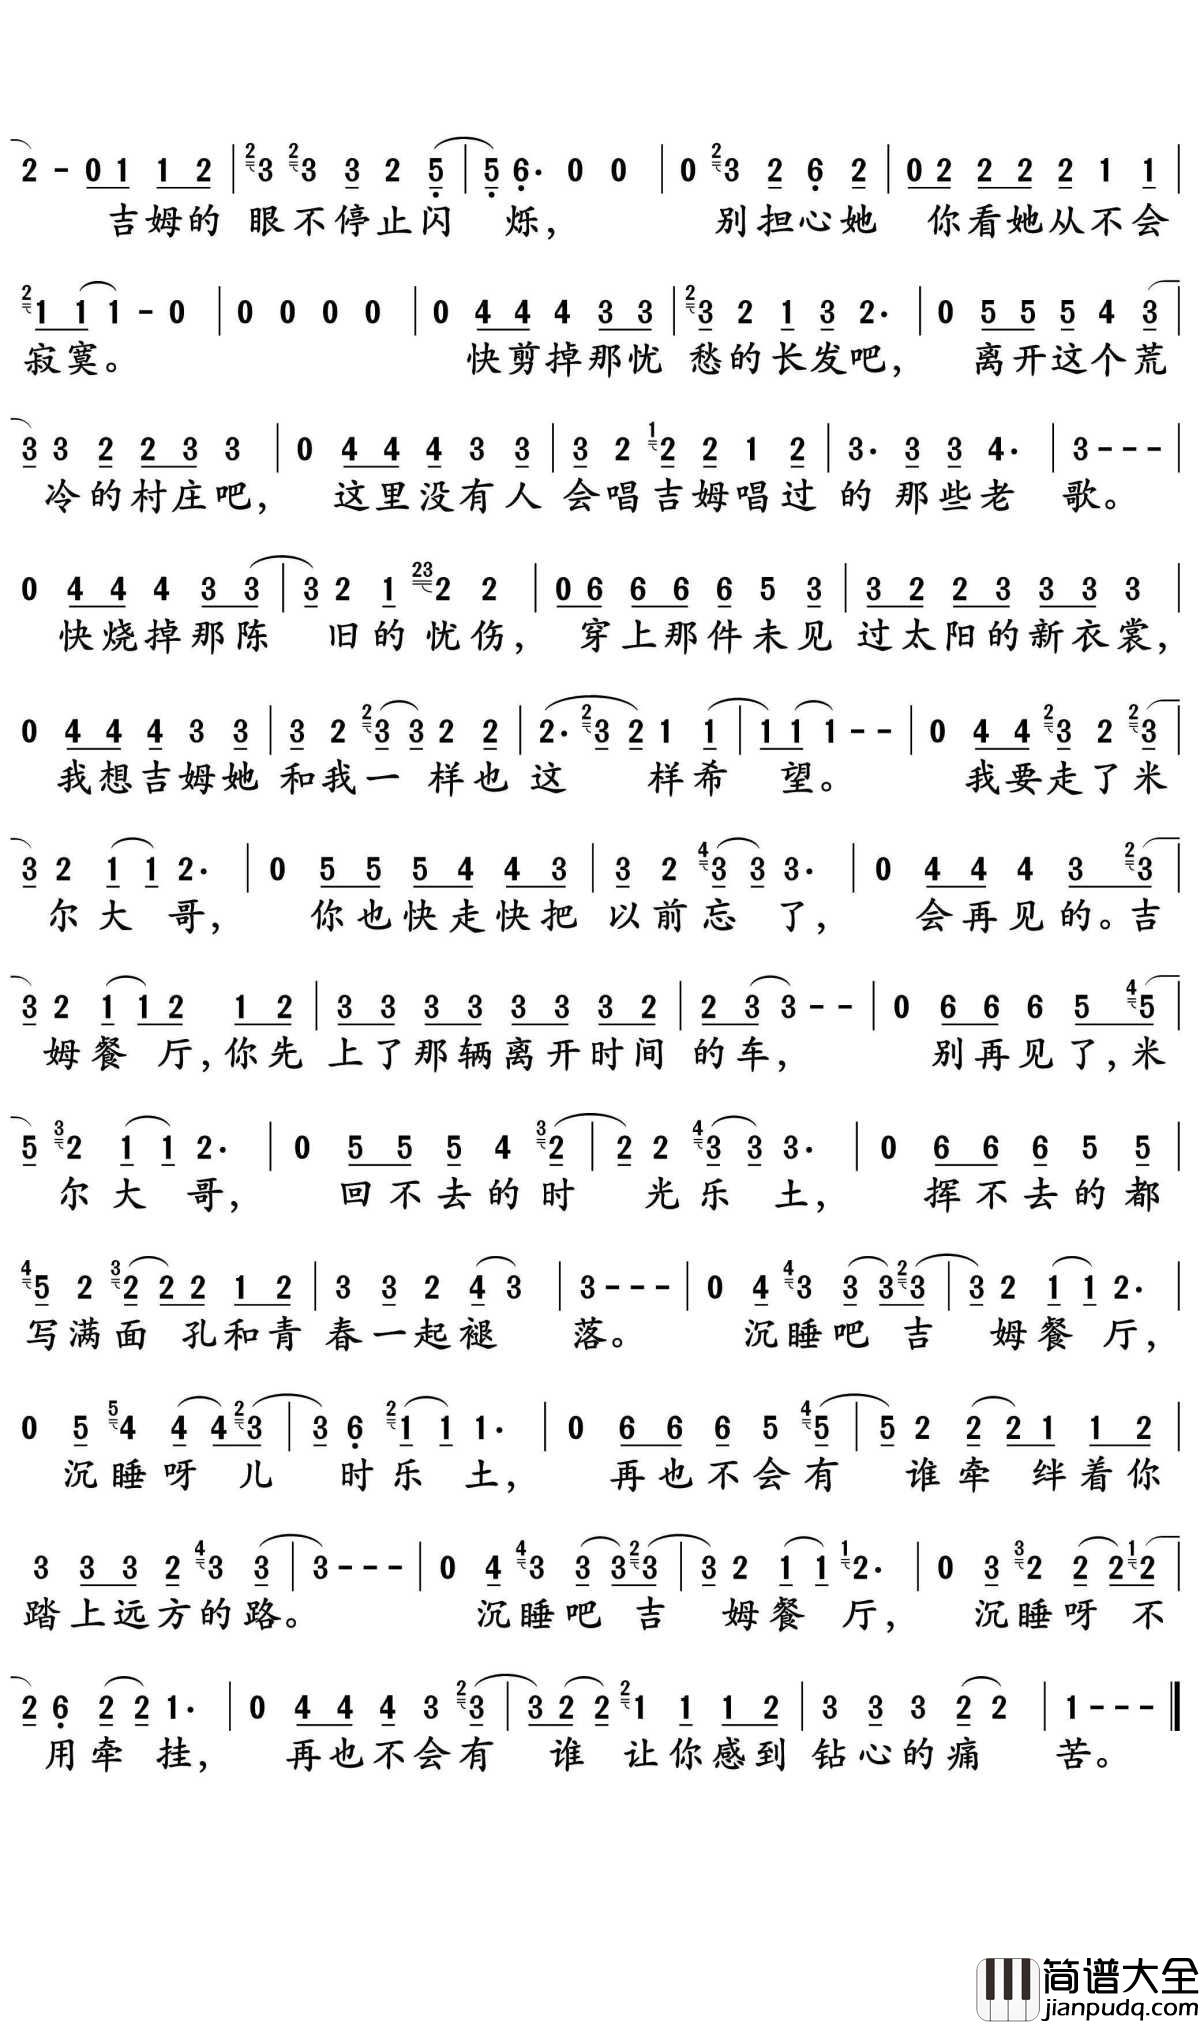 2 - 0 1 1 2 | 2 3 2 3 3 2 5 | 5 6· 0 0 | 0 2 3 2 6 2 | 0 2 2 2 2 1 1 |
吉姆的 眼不停止闪 烁， 别担心她 你看她从不会
2 1 1 1 - 0 | 0 0 0 0 | 0 4 4 4 3 3 | 2 3 2 1 3 2· | 0 5 5 5 4 3 |
寂寞。 快剪掉那忧 愁的长发吧， 离开这个荒
3 3 2 2 3 3 | 0 4 4 4 3 3 | 3 2 1 2 2 1 2 | 3· 3 3 4· | 3 - - - |
冷的村庄吧， 这里没有人 会唱吉姆唱过 的那些老 歌。
0 4 4 4 3 3 | 3 2 1 23 2 2 | 0 6 6 6 6 5 3 | 3 2 2 3 3 3 3 |
快烧掉那陈 旧的忧伤， 穿上那件未见 过太阳的新衣裳，
0 4 4 4 3 3 | 3 2 2 3 3 2 2 | 2· 2 3 2 1 1 | 1 1 1 - - | 0 4 4 2 3 2 2 3 |
我想吉姆她 和我一样也 这 样希 望。 我要走了米
3 2 1 1 2· | 0 5 5 5 4 4 3 | 3 2 4 3 3 3· | 0 4 4 4 3 2 3 |
尔大哥， 你也快走快把 以前忘了， 会再见的。吉
3 2 1 1 2 1 2 | 3 3 3 3 3 3 3 2 | 2 3 3 - - | 0 6 6 6 5 4 5 |
姆餐 厅，你先 上了那辆离开时间 的车， 别再见了，米
5 3 2 1 1 2· | 0 5 5 5 4 3 2 | 2 2 4 3 3 3· | 0 6 6 6 5 5 |
尔大 哥， 回不去的时 光乐 土， 挥不去的都
4 5 2 3 2 2 2 1 2 | 3 3 2 4 3 | 3 - - - | 0 4 4 3 3 3 2 3 | 3 2 1 1 2· |
写满面 孔和青 春一起褪 落。 沉睡吧 吉 姆餐 厅，
0 5 5 4 4 4 2 3 | 3 6 2 1 1 1· | 0 6 6 6 5 4 5 | 5 2 2 2 1 1 2 |
沉睡呀 儿 时乐 土， 再也不会有 谁牵 绊着你
3 3 3 2 4 3 3 | 3 - - - | 0 4 4 3 3 3 2 3 | 3 2 1 1 1 2· | 0 3 3 2 2 2 1 2 |
踏上远方的路。 沉睡吧 吉 姆餐 厅， 沉睡呀 不
2 6 2 2 1· | 0 4 4 4 3 2 3 | 3 2 2 2 1 1 1 2 | 3 3 3 2 2 | 1 - - - ‖
用牵 挂， 再也不会有 谁 让你感到 钻心的痛 苦。
简谱大全
jianpudq.com